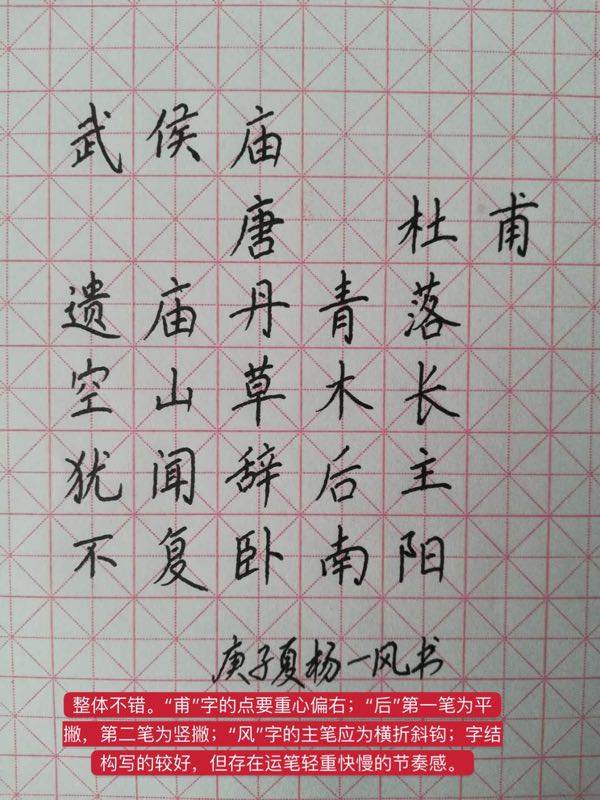 武侯庙
唐 杜甫
遗庙丹青落
空山草木长
犹闻辞后主
不复卧南阳
庚子夏杨一风书
整体不错。“甫”字的点要重心偏右；“后”第一笔为平
撇，第二笔为竖撇；“风”字的主笔应为横折斜钩；字结
构写的较好，但存在运笔轻重快慢的节奏感。